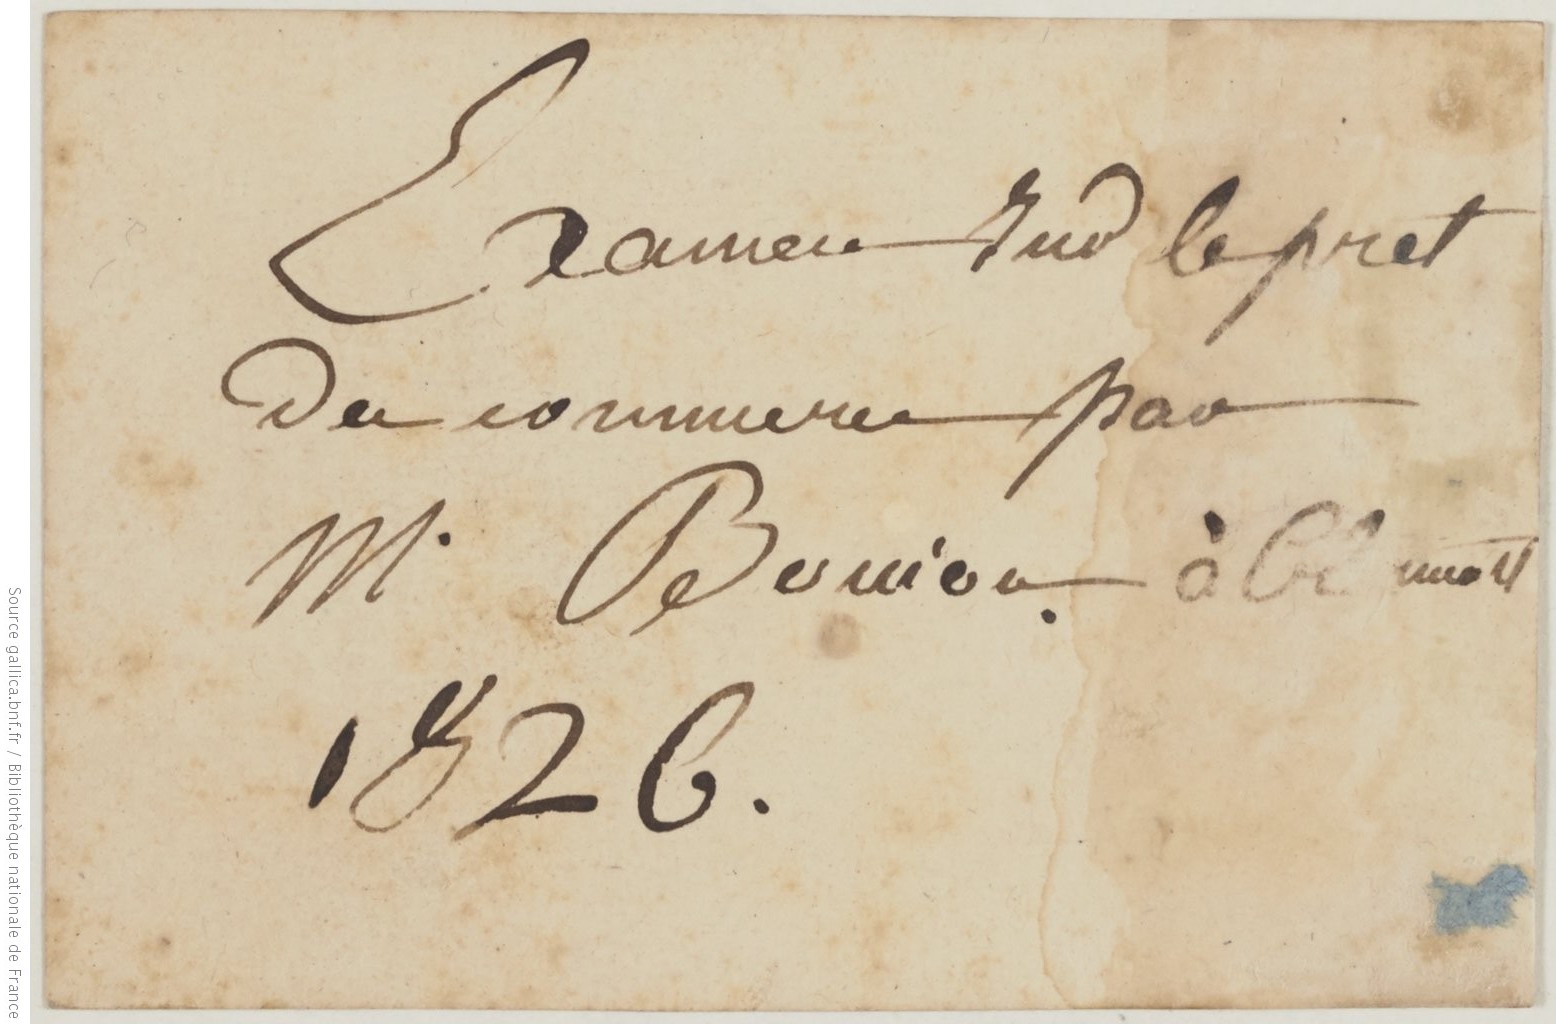 Examen Sur le pret
De commerce par
Mr. Bouniou. à Clermont
1826.
Source gallica.bnf.fr / Bibliothèque nationale de France